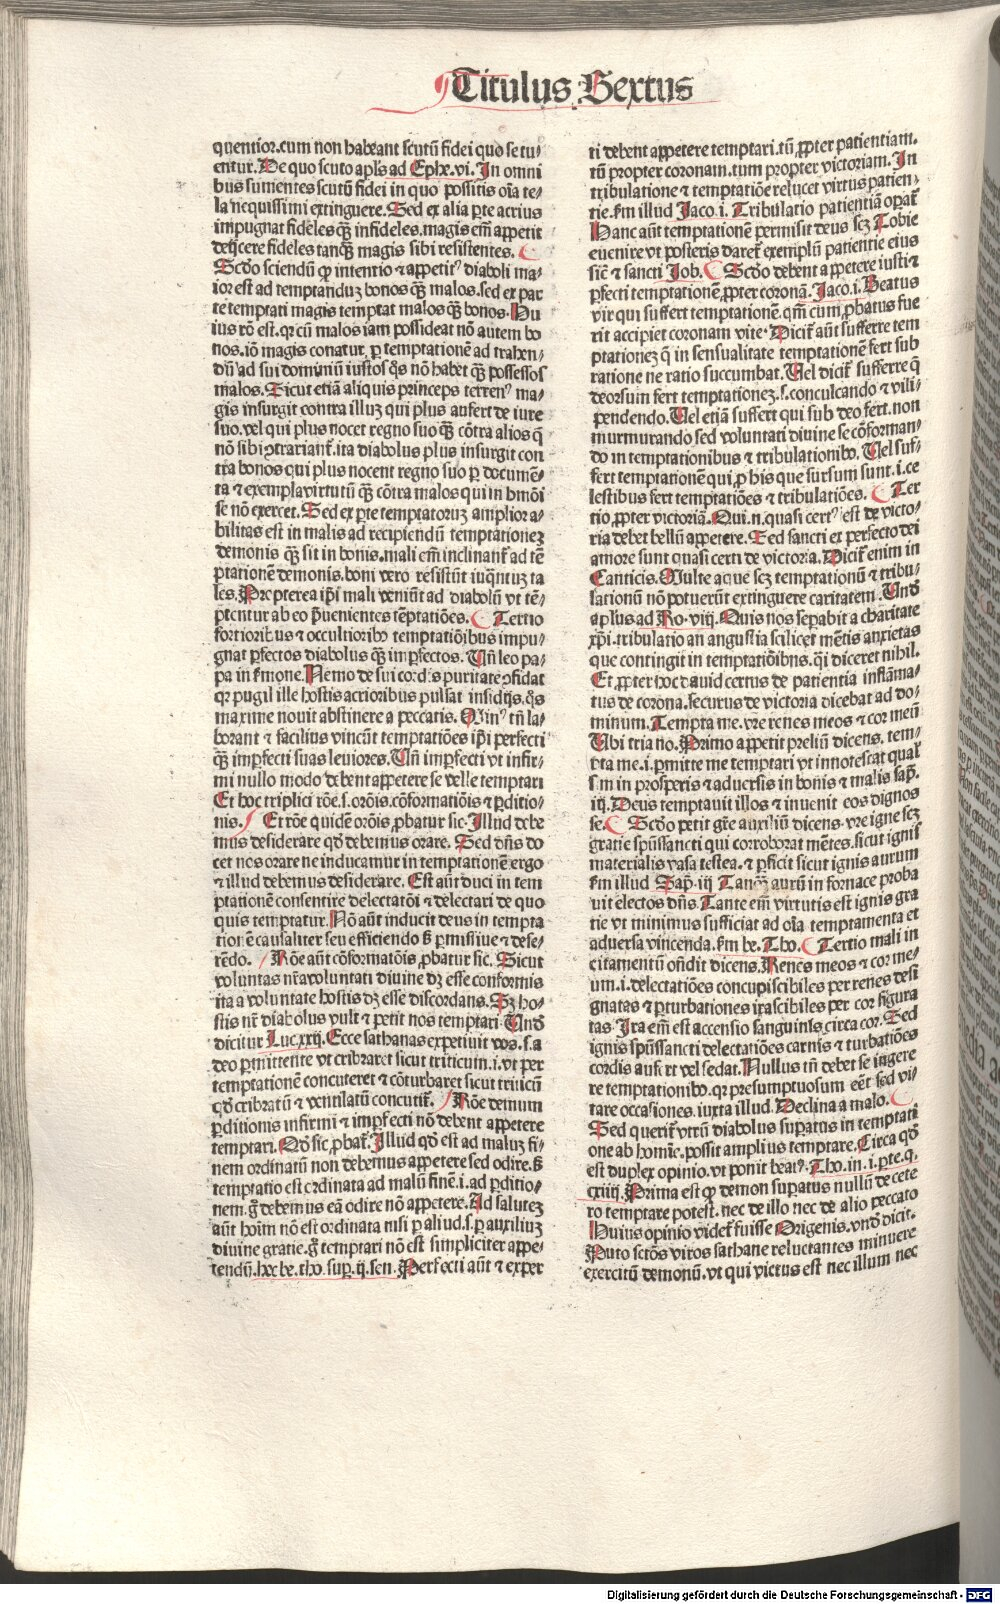 Titulus Sextus
quentior.cum non habeant scutū fidei quo se tu⸗
entur. De quo scuto apl's ad Ephe.vi. In omni
bus sumentes scutū fidei in quo possitis oīa te⸗
la nequissimi extinguere. Sed ex alia ꝑte acrius
impugnat fideles qꝫ̄ infideles.magis em̄ appetit
deijcere fideles tanqꝫ̄ magis sibi resistentes.
Scd̄o sciendū ꝙ intentio ⁊ appetitꝰ diaboli ma⸗
ior est ad temptanduꝫ bonos qꝫ̄ malos.sed ex par
te temptati magis temptat malos qꝫ̄ bonos. Hu
ius rō est.qꝛ cū malos iam possideat nō autem bo
nos.iō magis conatur ꝑ temptationē ad trahen⸗
dū ad sui dominiū iustos q̄s nō habet qꝫ̄ possessos
malos. Sicut etiā aliquis princeps terrenꝰ ma⸗
gis insurgit contra illuꝫ qui plus aufert de iure
suo.vel qui plus nocet regno suo qꝫ̄ cōtra alios q̄
nō sibi ꝯtrariant̄.ita diabolus plus insurgit con
tra bonos qui plus nocent regno suo ꝑ documē⸗
ta ⁊ exempla virtutū qꝫ̄ cōtra malos qui in hmōi
se nō exercet. Sed ex ꝑte temptatoruꝫ amplior a⸗
bilitas est in malis ad recipiendū temptationeꝫ
demonis qꝫ̄ sit in bonis.mali em̄ inclinant̄ ad tē
ptationē demonis.boni vero resistūt inq̄ntuꝫ ta
les. Propterea ip̄i mali veniūt ad diabolū vt tē⸗
ptentur ab eo p̄uenientes tēptatiōes. Tertio
fortioribus ⁊ occultioribꝰ temptatiōibus impu⸗
gnat ꝑfectos diabolus qꝫ̄ imꝑfectos. Un̄ leo pa⸗
pa in ẜmone. Nemo de sui cordis puritate ꝯfidat
qꝛ pugil ille hostis acrioribus pulsat insidijs.q̄s
maxime nouit abstinere a peccatis. Minꝰ tn̄ la⸗
borant ⁊ facilius vincūt temptatiōes ip̄i perfecti
qꝫ̄ imꝑfecti suas leuiores. Un̄ imꝑfecti vt infir⸗
mi nullo modo debent appetere se velle temptari
Et hoc triplici rōe.s.orōis.cōformatiōis ⁊ ꝑditio⸗
nis. Et rōe quidē orōis ꝓbatur sic. Illud debe
mus desiderare qd̄ debemus orare. Sed dn̄s do
cet nos orare ne inducamur in temptationē ergo
⁊ illud debemus desiderare. Est aūt duci in tem
ptationē consentire delectatōi ⁊ delectari de quo
quis temptatur. Nō aūt inducit deus in tempta
tionē causaliter seu efficiendo ẜ ꝑmissiue ⁊ dese⸗
rēdo. Rōe aūt cōformatōis ꝓbatur sic. Sicut
voluntas nr̄a voluntati diuine dꝫ esse conformis
ita a voluntate hostis dꝫ esse discordans. Sꝫ ho⸗
stis nr̄ diabolus vult ⁊ petit nos temptari. Und̄
dicitur Luc.xxij. Ecce sathanas expetiuit vos.s.a
deo ꝑmittente vt cribraret sicut triticum.i.vt per
temptationē concuteret ⁊ cōturbaret sicut triticū
qd̄ cribratū ⁊ ventilatū concutit̄. Rōe demum
ꝑditionis infirmi ⁊ imꝑfecti nō debent appetere
temptari. Qd̄ sic ꝓbat̄. Illud qd̄ est ad maluꝫ fi⸗
nem ordinatū non debemus appetere sed odire.ẜ
temptatio est ordinata ad malū finē.i.ad ꝑditio⸗
nem.g̊ debemus eā odire nō appetere. Ad saluteꝫ
aūt hoīm nō est ordinata nisi ꝑ aliud.s.ꝑ auxiliuꝫ
diuine gratie.g̊ temptari nō est simpliciter appe⸗
tendū.hec be.tho.sup.ij.sen. Perfecti aūt ⁊ exper
ti debent appetere temptari.tū ꝓpter patientiam.
tū propter coronam.tum propter victoriam. In
tribulatione ⁊ temptatiōe relucet virtus patien⸗
tie.ẜm illud Jaco.i. Tribulatio patientiā oꝑat̄
Hanc aūt temptationē permisit deus scꝫ Tobie
euenire vt posteris daret̄ exemplū patientie eius
sic̄ ⁊ sancti Job. Scd̄o debent appetere iusti ⁊
ꝑfecti temptationē ꝓpter coronā. Jaco.i. Beatus
vir qui suffert temptationē.qm̄ cum ꝓbatus fue
rit accipiet coronam vite. Dicit̄ aūt sufferre tem
ptationeꝫ q̄ in sensualitate temptationē fert sub
ratione ne ratio succumbat. Uel dicit̄ sufferre q̄
deorsum fert temptationeꝫ.s.conculcando ⁊ vili⸗
pendendo. Uel etiā suffert qui sub deo fert.non
murmurando sed voluntati diuine se cōforman⸗
do in temptationibus ⁊ tribulationibꝰ. Uel suf⸗
fert temptationē qui ꝓ his que sursum sunt.i.ce
lestibus fert temptatiōes ⁊ tribulatiōes. Ter
tio ꝓpter victoriā. Qui.n.quasi certꝰ est de victo⸗
ria debet bellū appetere. Sed sancti ex perfecto dei
amore sunt quasi certi de victoria. Dicit̄ enim in
Canticis. Multe aque scꝫ temptationū ⁊ tribu⸗
lationū nō potuerūt extinguere caritatem. Und̄
aplus ad Ro.viij. Quis nos separabit a charitate
xp̄i.tribulatio an angustia scilicet mētis anxietas
que contingit in temptatiōibus.q̄i diceret nihil.
Et ꝓpter hoc dauid certus de patientia inflāma⸗
tus de corona.securus de victoria dicebat ad do⸗
minum. Tempta me.vre renes meos ⁊ cor meū
Ubi tria no. Primo appetit preliū dicens.tem⸗
pta me.i.ꝑmitte me temptari vt innotescat qual'
sim in prosperis ⁊ aduersis in bonis ⁊ malis sap̄.
iij. Deus temptauit illos ⁊ inuenit eos dignos
se. Scd̄o petit gr̄e auxiliū dicens.vre igne scꝫ
gratie spūssancti qui corroborat mētes.sicut ignis
materialis vasa testea.⁊ ꝑficit sicut ignis aurum
ẜm illud Sap̄.iij Tanqꝫ̄ aurū in fornace proba
uit electos dn̄s. Tante em̄ virtutis est ignis gra
tie vt minimus sufficiat ad oīa temptamenta et
aduersa vincenda.ẜm be. Tho. Tertio mali in
citamentū on̄dit dicens. Renes meos ⁊ cor me⸗
um.i.delectatiōes concupiscibiles per renes desi
gnatas ⁊ ꝑturbationes irascibiles per cor figura
tas. Ira em̄ est accensio sanguinis circa cor. Sed
ignis spūssancti delectatiōes carnis ⁊ turbatiōes
cordis aufert vel sedat. Nullus tn̄ debet se ingere
re temptationibꝰ.qꝛ presumptuosum eēt sed vi⸗
tare occasiones.iuxta illud. Declina a malo.
Sed querit̄ vtrū diabolus suꝑatus in temptati
one ab homīe.possit amplius temptare. Circa qd̄
est duplex opinio.vt ponit beatꝰ. Tho.in.i.pte.q.
cxiiij. Prima est ꝙ demon suꝑatus nullū de cete
ro temptare potest.nec de illo nec de alio peccato
Huius opinio videt̄ fuisse Origenis.vnd̄ dicit.
Puto sctōs viros sathane reluctantes minuere
exercitū demonū.vt qui victus est nec illum nec
Digitalisierung gefördert durch die Deutsche Forschungsgemeinschaft - DFG